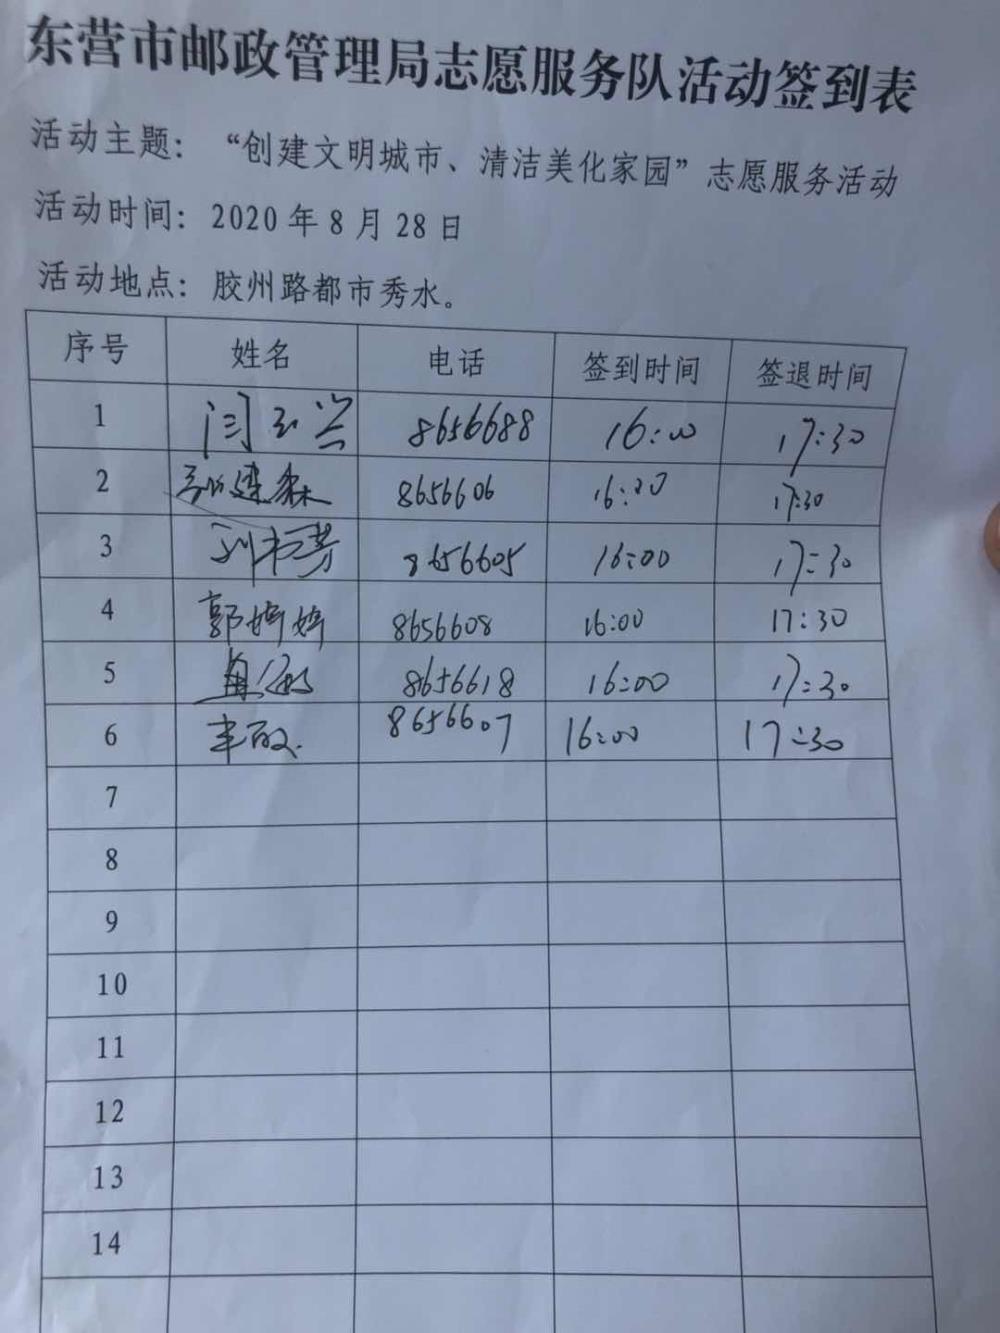 东营市邮政管理局志愿服务队活动签到表
活动主题：“创建文明城市、清洁美化家园”志愿服务活动
活动时间：2020年8月28日
活动地点：胶州路都市秀水。
序号 姓名 电话 签到时间 签退时间
1 闫玉兴 8656688 16:00 17:30
2 8656606 16:20 17:30
3 8656605 16:00 17:30
4 郭婷婷 8656608 16:00 17:30
5 8656618 16:00 17:30
6 丰敏 8656607 16:00 17:30
7
8
9
10
11
12
13
14